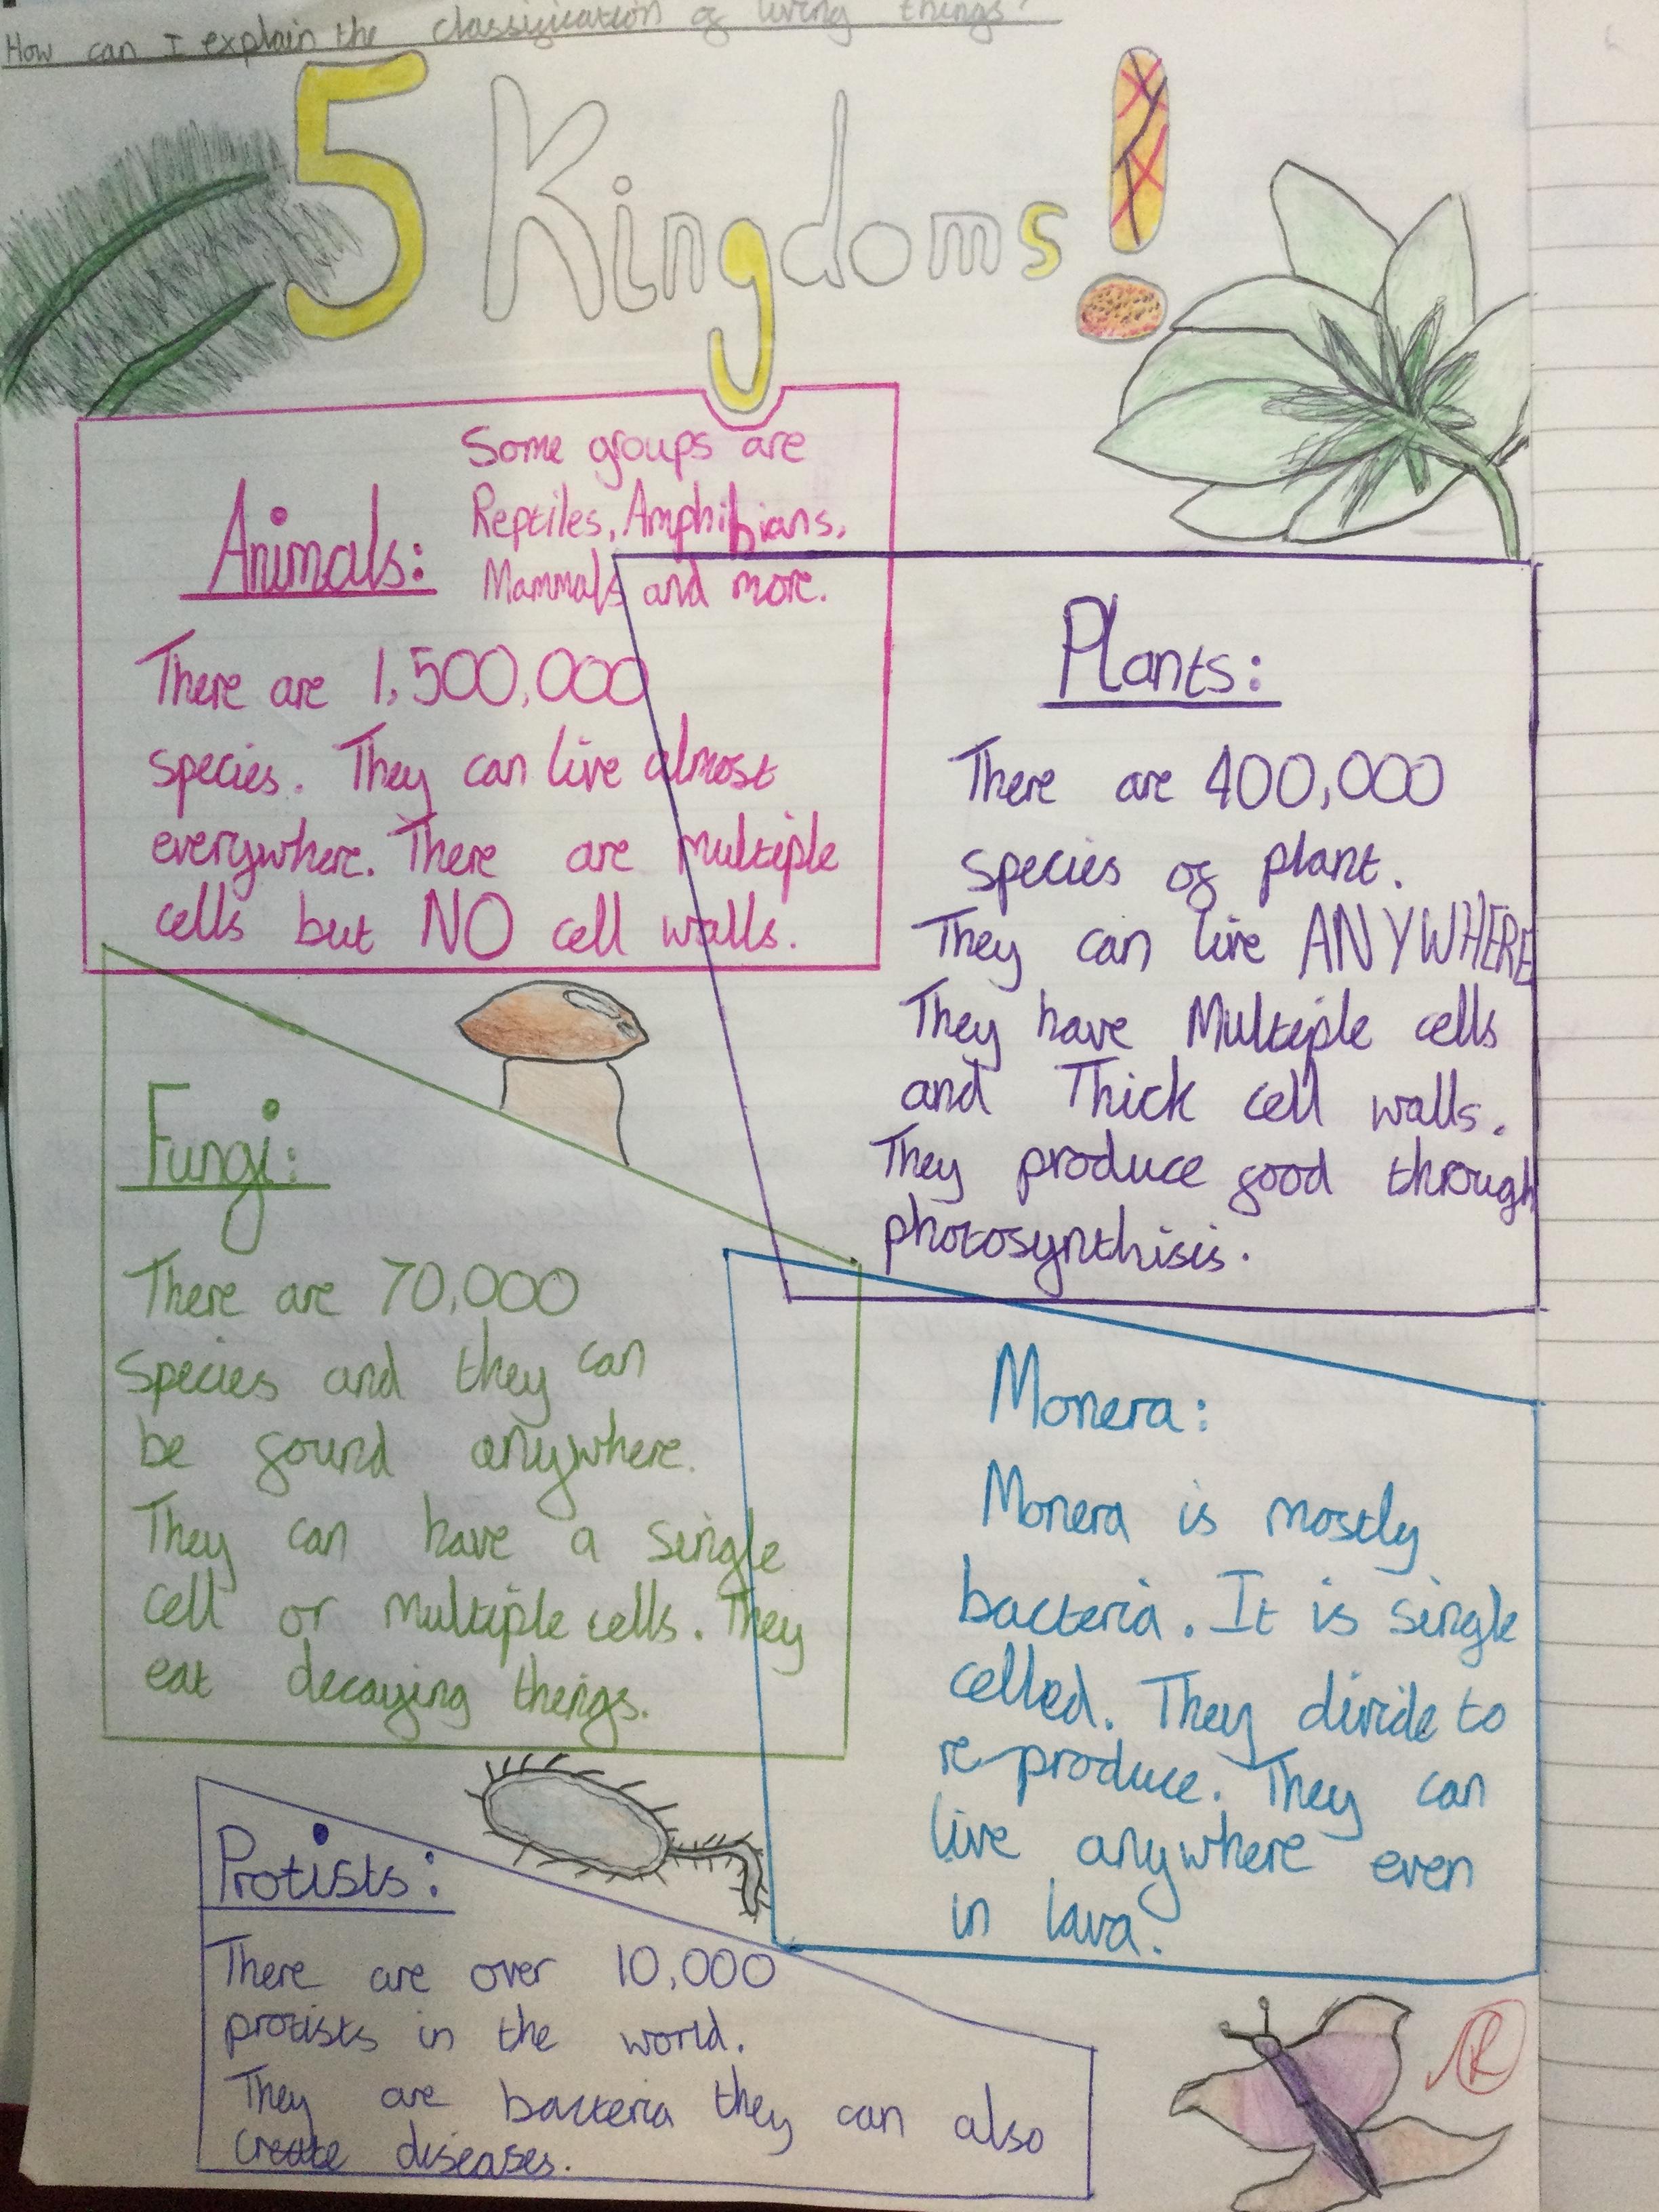 How can I explain the classification of living things?
5 Kingdoms!
Animals:
Some groups are
Reptiles, Amphibians,
Mammals and more.
There are 1,500,000
species. They can live almost
everywhere. There are multiple
cells but NO cell walls.
Plants:
There are 400,000
species of plant.
They can live ANYWHERE
They have Multiple cells
and Thick cell walls.
They produce food through
photosynthisis.
Fungi:
There are 70,000
species and they can
be found anywhere.
They can have a single
cell or multiple cells. They
eat decaying things.
Monera:
Monera is mostly
bacteria. It is single
celled. They divide to
re-produce. They can
live anywhere even
in lava.
Protists:
There are over 10,000
protists in the world.
They are bacteria they can also
create diseases.